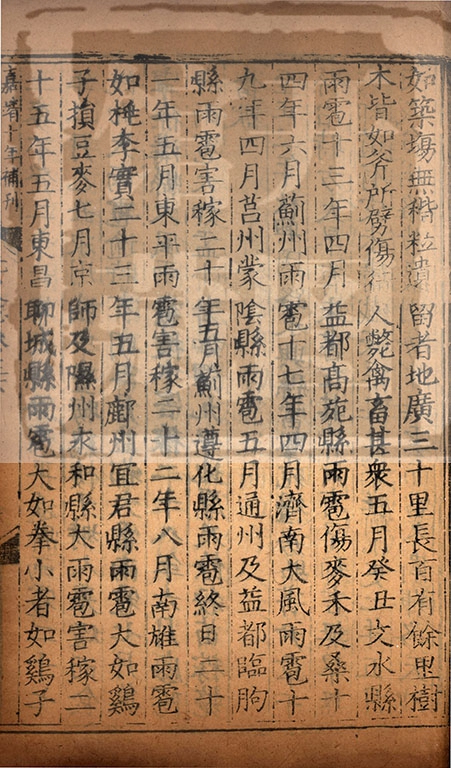 如築塲無稭粒遺留者地廣三十里長百有餘里樹
木皆如斧所劈傷行人斃禽畜甚衆五月癸丑文水縣
雨雹十三年四月益都高苑縣雨雹傷麥禾及桑十
四年六月薊州雨雹十七年四月濟南大風雨雹十
九年四月莒州蒙隂縣雨雹五月通州及益都臨朐
縣雨雹害稼二十年五月薊州遵化縣雨雹終日二十
一年五月東平雨雹害稼二十二年八月南雄雨雹
如桃李實二十三年五月鄜州宜君縣雨雹大如鷄
子損豆麥七月京師及隰州永和縣大雨雹害稼二
十五年五月東昌聊城縣雨雹大如拳小者如鷄子
嘉靖十年補刊